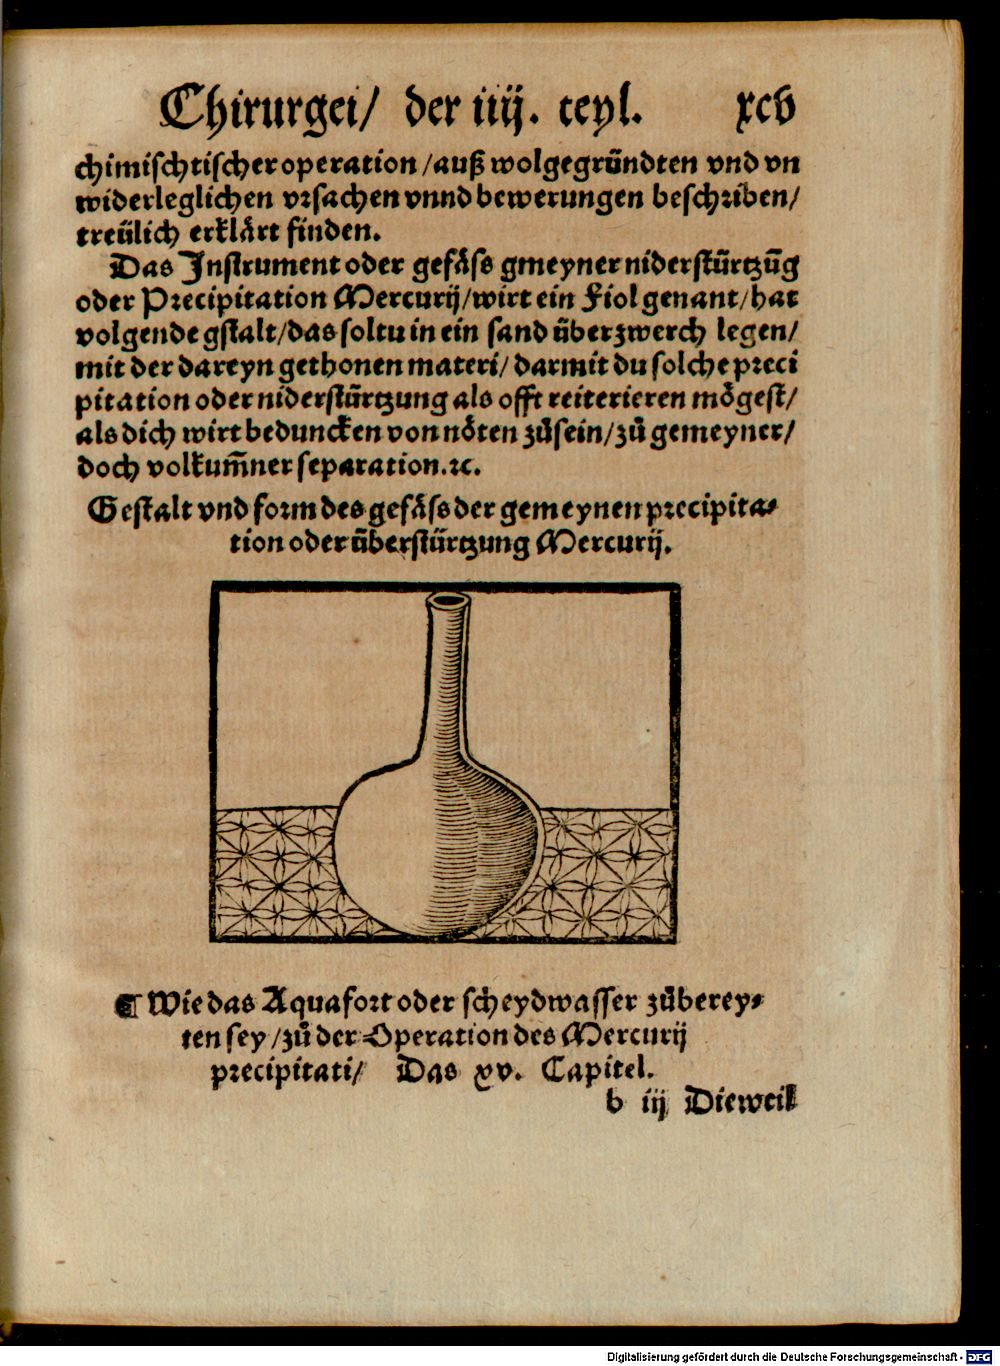 Chirurgei/ der iiij. teyl. xcv
chimischtischer operation/auß wolgegründten vnd vn
widerleglichen vrsachen vnnd bewerungen beschriben/
treülich erklårt finden.
Das Instrument oder gefåſs gmeyner niderstürtzūg
oder Precipitation Mercurij/wirt ein Fiol genant/hat
volgende gstalt/das soltu in ein sand überzwerch legen/
mit der dareyn gethonen materi/darmit du solche preci
pitation oder niderstürtzung als offt reiterieren mögest/
als dich wirt beduncken von nöten zůsein/zů gemeyner/
doch volkum̄ner separation.ꝛc.
Gestalt vnd form des gefåſs der gemeynen precipita⸗
tion oder überstürtzung Mercurij.
¶ Wie das Aquafort oder scheydwasser zůberey⸗
ten sey/zů der Operation des Mercurij
precipitati/ Das xv. Capitel.
b iij Dieweil
Digitalisierung gefördert durch die Deutsche Forschungsgemeinschaft - DFG